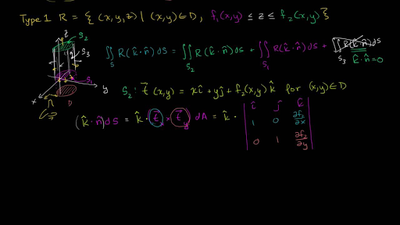 Type 1 R = { (x,y,z) | (x,y) ∈ D, f₁(x,y) ≤ z ≤ f₂(x,y) }
z S₂
S₃
S₁
x D y
R
∬_S R(k̂·n̂) dS = ∬_S₂ R(k̂·n̂) dS + ∬_S₁ R(k̂·n̂) dS + ∬_S₃ R(k̂·n̂) dS
k̂·n̂ = 0
S₂: t⃗(x,y) = x î + y ĵ + f₂(x,y) k̂ for (x,y) ∈ D
(k̂·n̂) dS = k̂ · t⃗ₓ × t⃗ᵧ dA = k̂ · | î ĵ k̂ |
| 1 0 ∂f₂/∂x |
| 0 1 ∂f₂/∂y |